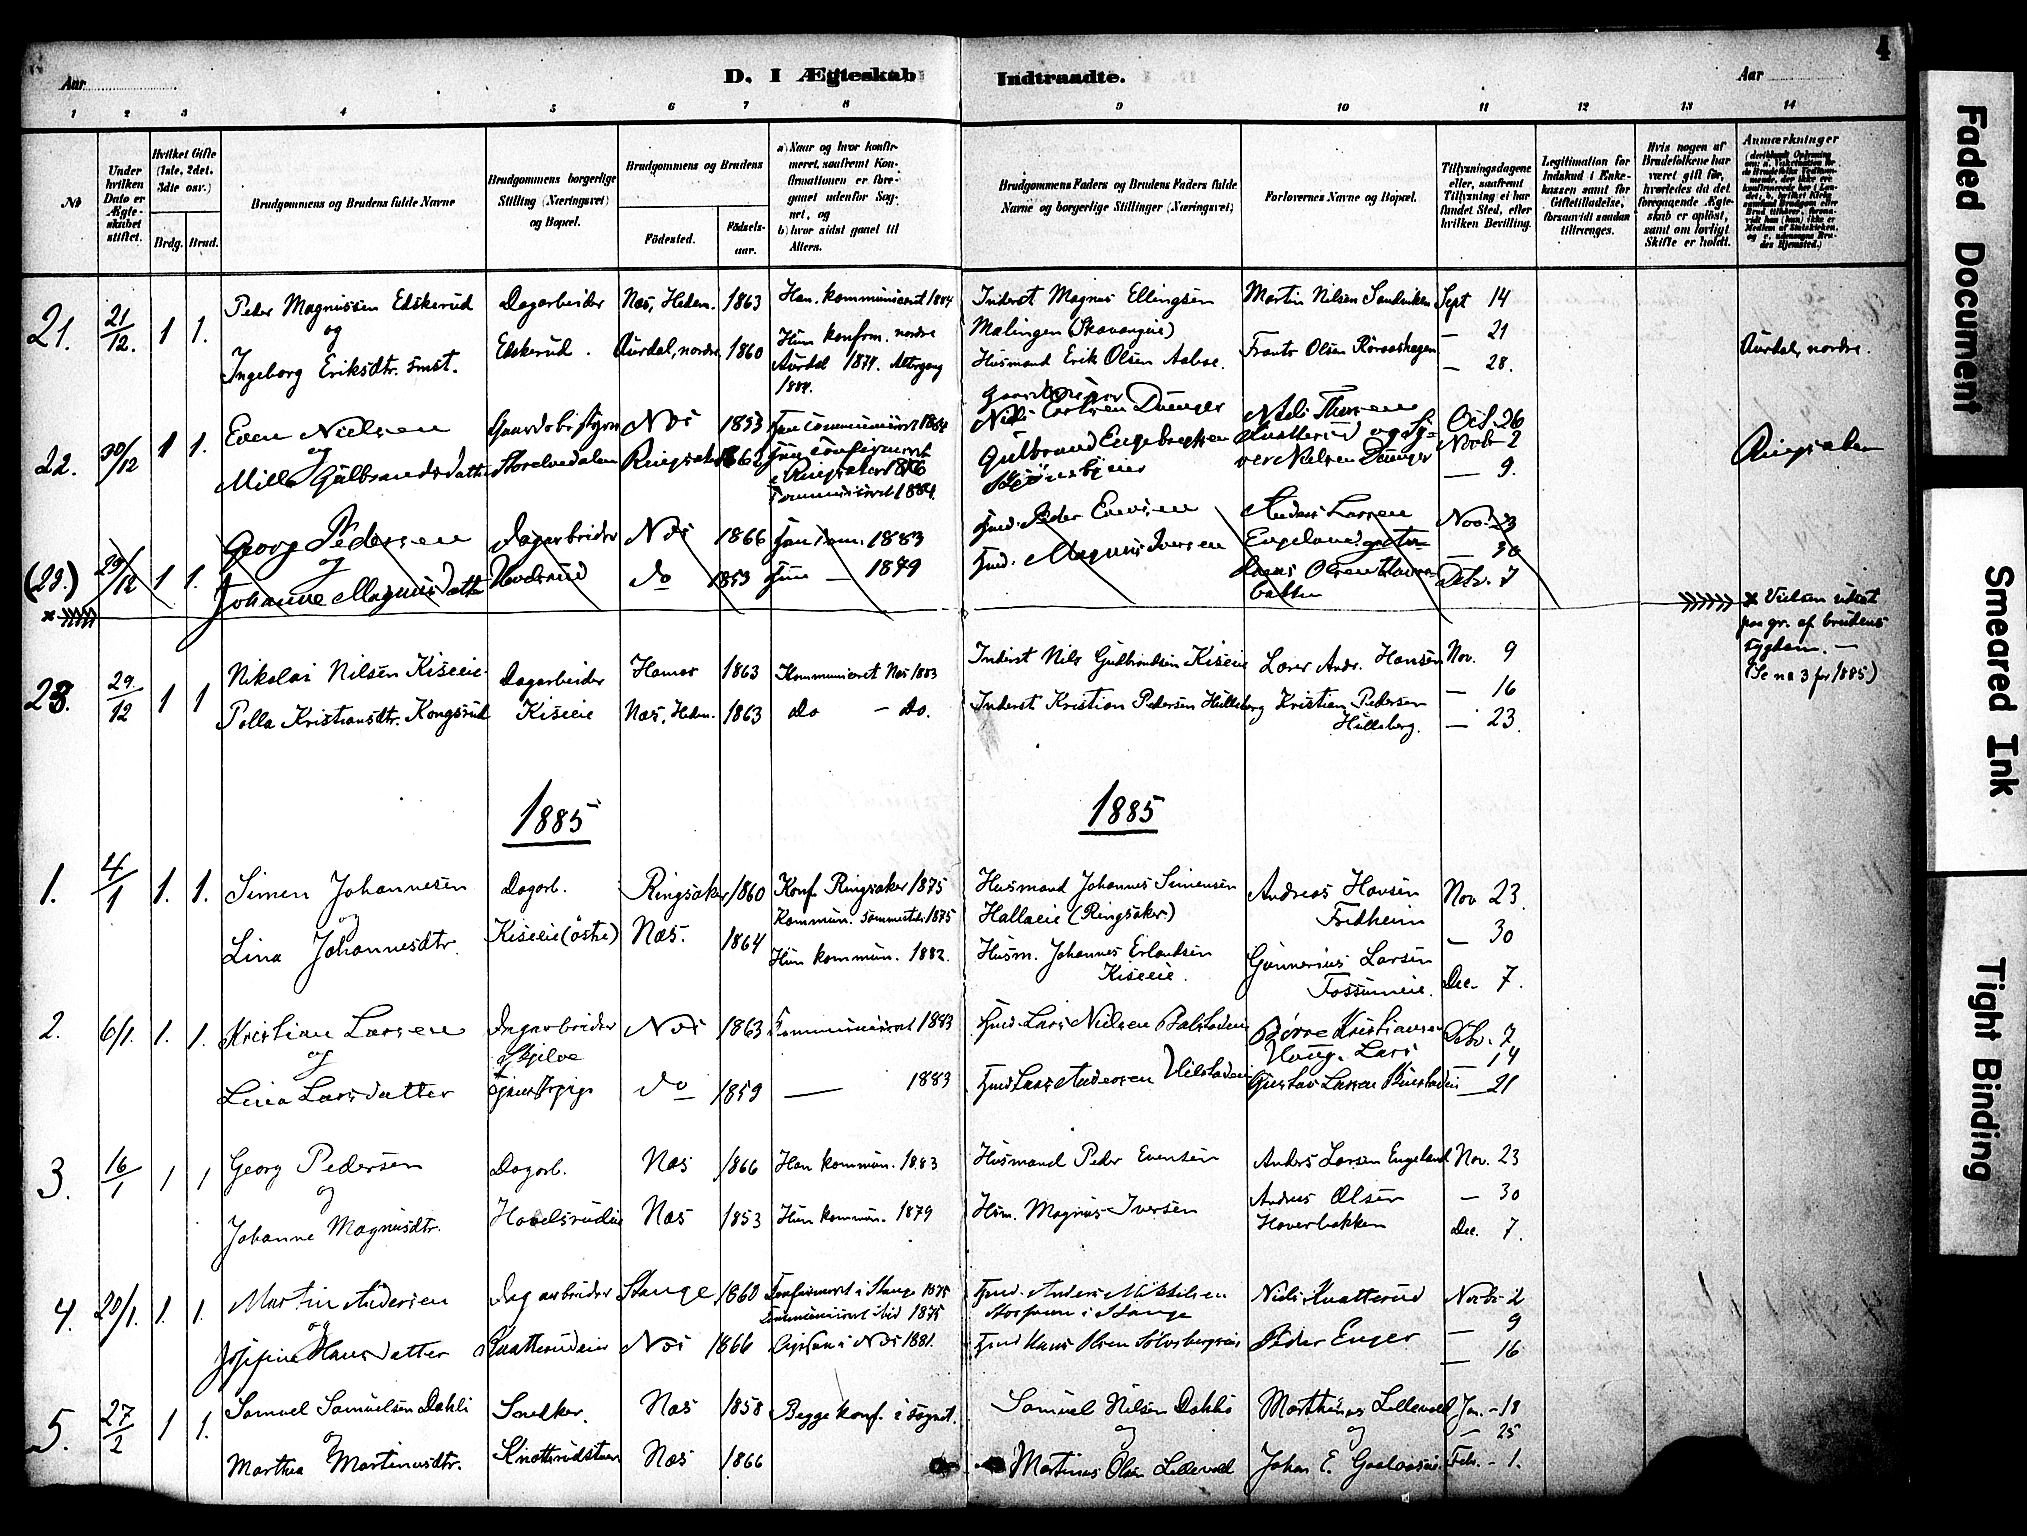 4
Aar
D. I Ægteskab Indtraadte.
Aar
1 2 3 4 5 6 7 8 9 10 11 12 13 14
No
Under hvilken Dato er Ægteskabet stiftet.
Hvilket Gifte (1ste, 2det, 3die osv.)
Brdg. Brud.
Brudgommens og Brudens fulde Navne
Brudgommens borgerlige Stilling (Næringsvei) og Bopæl.
Brudgommens og Brudens
Födested. Födsels-aar.
a) Naar og hvor konfirmeret, saafremt Konfirmationen er foregaaet udenfor Sognet, og
b) hvor sidst gaaet til Alters.
Brudgommens Faders og Brudens Faders fulde Navne og borgerlige Stillinger (Næringsvei)
Forlovernes Navne og Bopæl.
Tillysningsdagene eller, saafremt Tillysning ei har fundet Sted, efter hvilken Bevilling.
Legitimation for Indskud i Enkekassen samt for Giftetilladelse, forsaavidt saadan tiltrænges.
Hvis nogen af Brudefolkene har været gift før, hvorledes da det foregaaende Ægteskab er opløst, samt om lovligt Skifte er holdt.
Anmærkninger
21. 21/12. 1 1. Peder Magnussen Edskerud Dagarbeider Næs, Hedm. 1863 Han kommuniceret 1884 Inderst Magnus Ellingsen Martin Nilsen Sandviken Sept 14
og Malingen (Skavangeie) — 21
Ingeborg Eriksdtr. smst. Edskerud. Aurdal, nordre 1860 Hun konfirm. nordre Aurdal 1874. Altergang 1884. Husmand Erik Olsen Aabae. Frants Olsen Röraashagen — 28. Aurdal, nordre.
22. 30/12 1 1. Even Nielsen Gaardbestyrer Næs 1853 Han communiceret 1884 Nils Dænger Oct. 26
og Norb 2
Gulbrandsdatter Storelvedalen Ringsaker Hun confirmeret Ringsaker 1876 communiceret 1884. Gulbrand Engebregtsen Nielsen Dænger — 9. Ringsaker
(23.) 29/12 1 1. Georg Pedersen Dagarbeider Næs 1866 Han kom. 1883 Hmd. Peder Evensen Anders Larsen Nov. 23
og Engeland — 30
Johanne Magnusdatter do 1853 Hun — 1879 Hmd. Magnus Iversen Olsen Debr. 7
× Vielsen udsat paa gr. af brudens sygdom. — (Se no 3 for 1885)
23. 29./12 1 1 Nikolai Nilsen Kiseeie Dagarbeider Hamar 1863 Kommuniceret Næs 1883 Inderst Nils Gulbrandsen Kiseeie Lærer Andr. Hansen Nov. 9
— 16
Polla Kristiansdtr. Kongsrud Kiseeie Næs, Hedm. 1863 do — do. Inderst Kristian Pedersen Hulleberg Kristian Pedersen Hulleberg. — 23.
1885 1885
1. 4/1 1. 1. Simen Johannesen Dagarb. Ringsaker 1860 Konf. Ringsaker 1875 Husmand Johannes Simensen Andreas Hansen Nov 23.
og Kommun. sammesteds 1875 Hallaeie (Ringsaker) Fredheim — 30
Lina Johannesdtr. Kiseeie (östre) Næs. 1864 Hun kommun. 1882. Husm. Johannes Erlandsen Kiseeie. Gunnerius Larsen Fossumeie. Dec. 7.
2. 6/1. 1. 1. Kristian Larsen Dagarbeider Næs 1863 Communiceret 1883 Hmd. Lars Nielsen Balstadeie Børre Kristiansen Debr. 7
og Skjelve Houg. Lars — 14
Lina Larsdatter do 1859 — 1883 Hmd Lars Andersen Gustav Larsen — 21
3. 16/1 1 1 Georg Pedersen Dagarb. Næs 1866 Han kommun. 1883 Husmand Peder Evensen Anders Larsen Engeland Nov. 23
og Andreas Olsen — 30
Johanne Magnusdtr. Hovelsrudeie Næs 1853 Hun kommun. 1879 Hsm. Magnus Iversen Haverbakken Dec. 7.
4. 20/1. 1. 1. Martin Andersen Dagarbeider Stange 1860 Confirmeret i Stange 1875 Hmd. Anders Mikkelsen Niels Knatterud Norbr 2
og Communiceret ibid 1875 i Stange — 9
Josefine Hansdatter Knatterudeie Næs 1866 i Næs 1881. Hmd Hans Olsen Solvbergeie Peder Enger — 16
5. 27/2 1 1. Samuel Samuelsen Dahli Snedker. Næs 1858 Begge konf. i sognet. Samuel Nilsen Dahli Marthinus Lillevold Jan. - 18
og og og - 25
Marthea Martinusdtr. Knatterudstuen Næs 1866 Martinus Olsen Lillevold Johan E. Febr. - 1.
Faded Document
Smeared Ink
Tight Binding